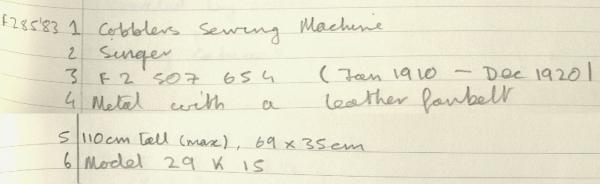 F285'83 1 Cobblers Sewing Machine
2 Singer
3 F 2 507 654 (Jan 1910 - Dec 1920)
4 Metal with a leather fanbelt
5 110cm Tall (max), 69 x 35cm
6 Model 29 K 15